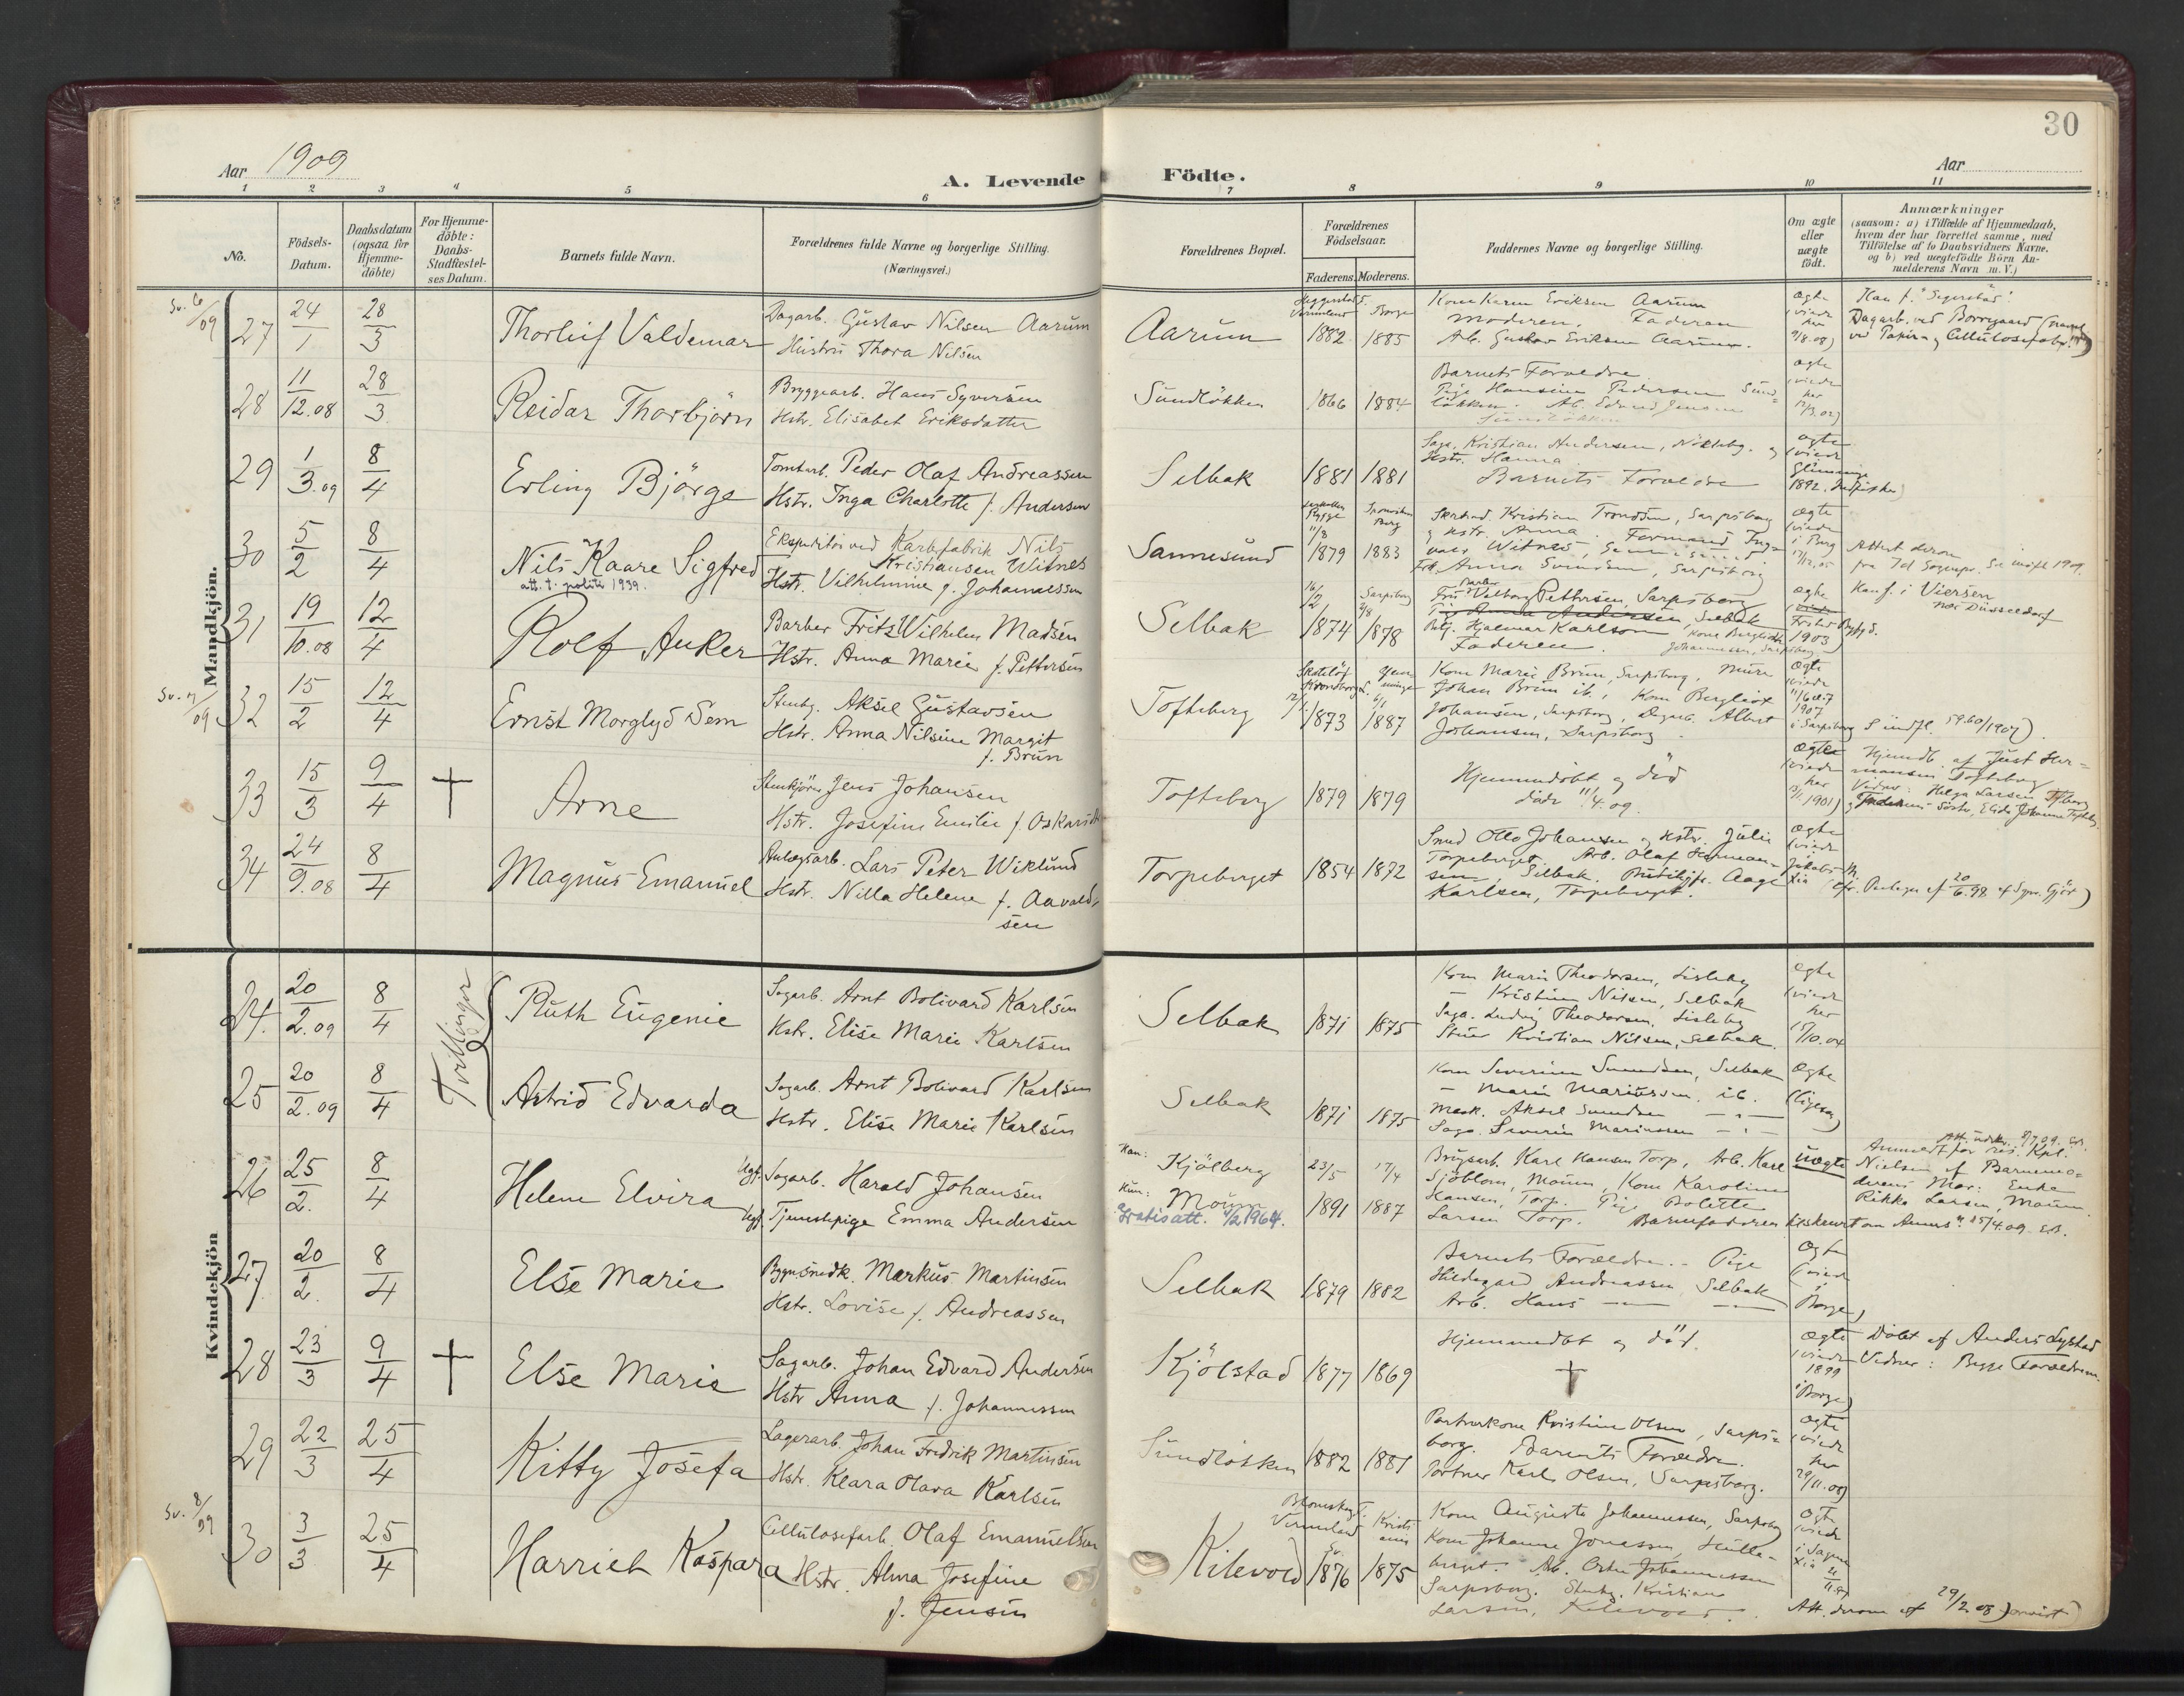 30
Aar 1909
A. Levende Födte.
Aar
1 2 3 4 5 6 7 8 9 10 11
No.
Födsels-
Datum.
Daabsdatum
(ogsaa for
Hjemme-
döbte)
For Hjemme-
döbte:
Daabs-
Stadfæstel-
ses Datum.
Barnets fulde Navn.
Forældrenes fulde Navne og borgerlige Stilling.
(Næringsvei.)
Forældrenes Bopæl.
Forældrenes
Födselsaar.
Faderens. Moderens.
Faddernes Navne og borgerlige Stilling.
Om ægte
eller
uægte
födt.
Anmærkninger
(saasom: a) i Tilfælde af Hjemmedaab,
hvem der har forrettet samme, med
Tilföielse af to Daabsvidners Navne.
og b) ved uægtefödte Börn An-
melderens Navn m. V.)
Mandkjön.
Sv. 6/09
27 24/1 28/3
Thorleif Valdemar
Dagarb. Gustav Nilsen Aarum
Hustru Thora Nilsen
Aarum
Vermland Borge
1882 1885
Kone Karen Eriksen Aarum
Moderen. Faderen
Arb. Gustav Eriksen Aarum.
ægte
(viede
her
9/8.08)
Dagarb. ved Borregaard
28 11/12.08 28/3
Reidar Thorbjörn
Bryggearb. Hans Syversen
Hstr. Elisabet Eriksdatter
Sundlökken
1866 1884
Barnets Forældre
Pige Hansine Pedersen Sund=
lökken. Arb. Edvard Jensen
Sundlökken
ægte
(viede
her
29 1/3.09 8/4
Erling Björge
Tomtarb. Peder Olaf Andreassen
Hstr. Inga Charlotte f. Andersen
Selbak
1881 1881
Saga. Kristian Andersen, Nökleby. og
Hstr. Hanna
Barnets Forældre
ægte
(viede
Glemminge
30 5/2 8/4
Nils Kaare Sigfred
att. t. politi 1939.
Ekspeditör ved Karbidfabrik Nils
Kristiansen Witnes
Hstr. Vilhelmine f. Johannessen
Sannesund
Rygge
11/8
1879 1883
Kristian Trondsen, Sarpsborg
og Hstr. Anna. Formand Ing=
Witnes, Sannesund
Frk. Anna Svendsen, Sarpsborg
ægte
(viede
i Berg
Attest derom
31 19/10.08 12/4
Rolf Anker
Barber Fritz Wilhelm Madsen
Hstr. Anna Marie f. Pettersen
Selbak
16/2 Sarpsborg
1874 1878
Fru Valborg Pettersen, Sarpsborg
Pige Anna Andersen, Selbak
Hjalmar Karlsen
Faderen.
ægte
1903
Kauf. i Viersen
nær Düsseldorf
Sv. 7/09
32 15/2 12/4
Ernst Morglyd Dem
Stenhg. Aksel Gustavsen
Hstr. Anna Nilsine Margit
f. Brun
Tofteberg
1873 1887
Kone Marie Brun, Sarpsborg, Murer
Johan Brun ib., Kone Bergliot
Johansen, Sarpsborg, Dagarb. Albert
Johansen, Sarpsborg.
ægte
viede
1907
i Sarpsborg
33 15/3 9/4 †
Arne
Stenkjörer Jens Johansen
Hstr. Josefine Emilie f. Oskarsdtr
Tofteberg
1879 1879
Hjemmedöbt og död
döde 11/4.09.
ægte
(viede
her
1901)
Hjemdb. af Just Her=
mansen Tofteberg
Vidner: Helga Larsen
34 24/9.08 8/4
Magnus Emanuel
Anlægsarb. Lars Peter Wiklund
Hstr. Nilla Helene f. Aavald-
sen
Torpeberget
1854 1872
Smed Otto Johansen og Hstr. Julie
Torpeberget. Arb. Olaf Herman-
sen, Selbak. Aage
Karlsen, Torpeberget.
ægte
(viede
Kvindekjön
Tvillinger
24. 20/2.09 8/4
Ruth Eugenie
Sagarb. Arnt Bolivard Karlsen
Hstr. Elise Marie Karlsen
Selbak
1871 1875
Kone Marie Theodorsen, Lisleby
— Kristine Nilsen, Selbak
Saga. Ludvig Theodorsen, Lisleby
Kristian Nilsen, Selbak.
ægte
(viede
her
25 20/2.09 8/4
Astrid Edvarda
Sagarb. Arnt Bolivard Karlsen
Hstr. Elise Marie Karlsen
Selbak
1871 1875
Kone Severine Svendsen, Selbak
— Marie Mariussen, ib.
Mask. Aksel Svendsen — " —
Saga. Severin Mariussen — " —
ægte
(ligesaa)
26 25/2. 8/4
Helene Elvira
Ugf. Sagarb. Harald Johansen
Ugf. Tjenestepige Emma Andersen
Han: Kjölberg
Hun: Moum
Gratis att. 4/2 1964.
23/5 17/4
1891 1887
Brugsarb. Karl Hansen Torp, Arb. Karl
Sjöblom, Moum, Kone Karoline
Hansen, Torp. Pige Bolette
Larsen Torp. Barnefaderen tilskrevet om Anms. 25/4.09.
uægte
Anmeldt for res. Kpl.
Nielsen af Barnemo=
derens Mor: Enke
Rikke Larsen, Moum.
27 20/2. 8/4
Else Marie
Bygnsnedk. Markus Martinsen
Hstr. Lovise f. Andreassen
Selbak
1879 1882
Barnets Forældre. - Pige
Hildegard Andreassen Selbak
Arb. Hans — —
ægte
(viede
i
Borge)
28 23/3 9/4 †
Else Marie
Sagarb. Johan Edvard Andersen
Hstr Anna f. Johannessen
Kjölstad
1877 1869
Hjemmedbt og död.
†
ægte
(viede
1899
i Borge)
Döbt af Anders Lystad
Vidner: Begge Forældrene.
29 22/3 25/4
Kitty Josefa
Lagerarb. Johan Fredrik Martinsen
Hstr. Klara Olava Karlsen
Sundlökken
1882 1881
Portnerkone Kristine Olsen, Sarps=
borg. Barnets Forældre.
Portner Karl Olsen, Sarpsborg.
ægte
(viede
her
29/11.08)
Sv. 8/09
30 3/3 25/4
Harriet Kaspara
Cellulosefarb. Olaf Emanuelsen
Hstr. Alma Josefine
f. Jensen
Kilevold
Vermland Kristi
ania
1876 1875
Kone Augusta Johannessen, Sarpsborg
Kone Johanne Jonassen, Hulle-
berget. Arb. Oskar Johannessen
Sarpsborg. Stenhg. Kristian
Larsen, Kilevold.
ægte
(viede
Att. derom af 29/2 08